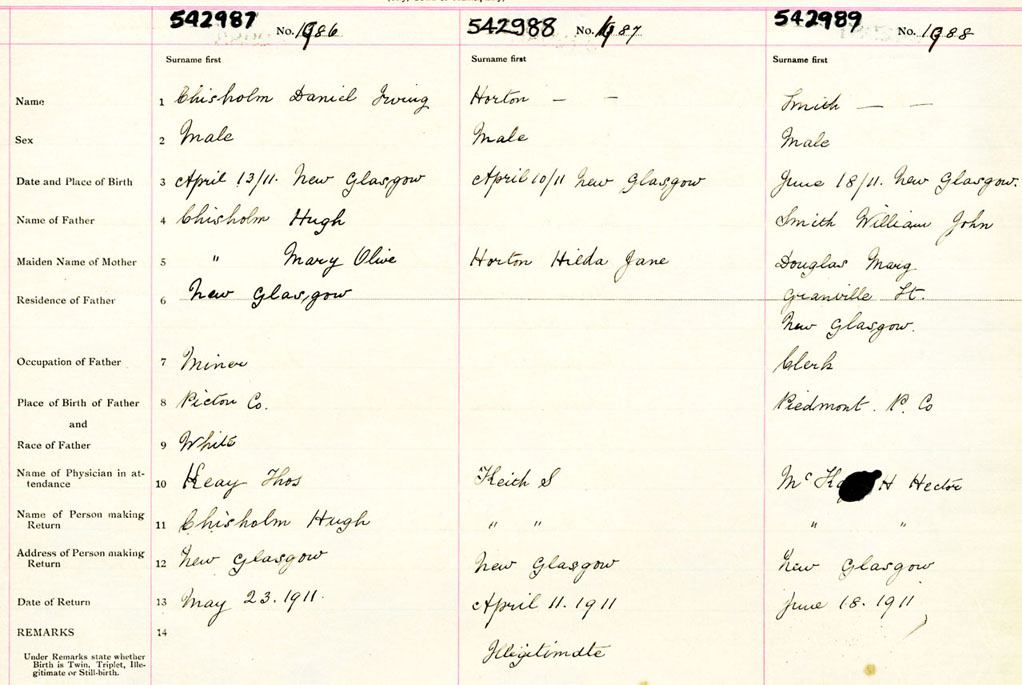 542987 No. 1986 542988 No. 1987 542989 No. 1988
Surname first Surname first Surname first
Name 1 Chisholm Daniel Irving Horton — — Smith — —
Sex 2 Male Male Male
Date and Place of Birth 3 April 13/11. New Glasgow April 10/11 New Glasgow June 18/11. New Glasgow.
Name of Father 4 Chisholm Hugh Smith William John
Maiden Name of Mother 5 " Mary Olive Horton Hilda Jane Douglas Marg
Residence of Father 6 New Glasgow Granville St.
New Glasgow.
Occupation of Father 7 Miner Clerk
Place of Birth of Father 8 Pictou Co. Piedmont. P. Co
and
Race of Father 9 White
Name of Physician in at-
tendance 10 Keay Thos Keith S Hector
Name of Person making
Return 11 Chisholm Hugh " " " "
Address of Person making
Return 12 New Glasgow New Glasgow New Glasgow
Date of Return 13 May 23. 1911. April 11. 1911 June 18. 1911
REMARKS 14
Illegitimate
Under Remarks state whether
Birth is Twin, Triplet, Ille-
gitimate or Still-birth.